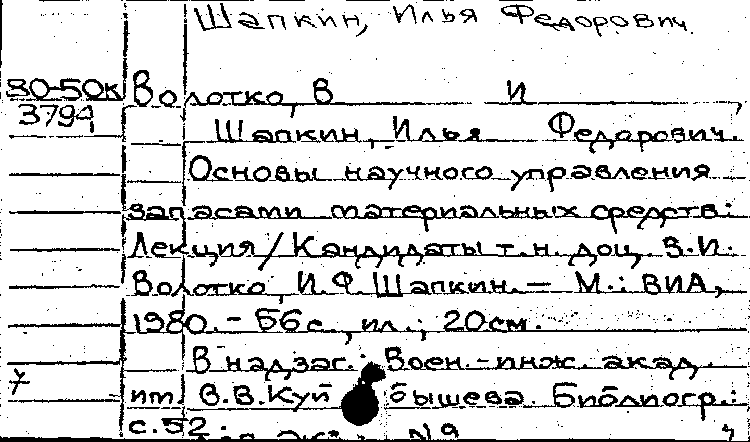 Шапкин, Илья Федорович
80-50к Волотко, В И ,
3794 Шапкин, Илья Федорович.
Основы научного управления
запасами материальных средств:
Лекция / Кандидаты т.н. доц. В.И.
Волотко, И.Ф. Шапкин. — М.: ВИА,
1980. - 56 с., ил.; 20 см.
В надзаг.: Воен.-инж. акад.
7 им. В.В. Куй бышева. Библиогр.:
с. 52